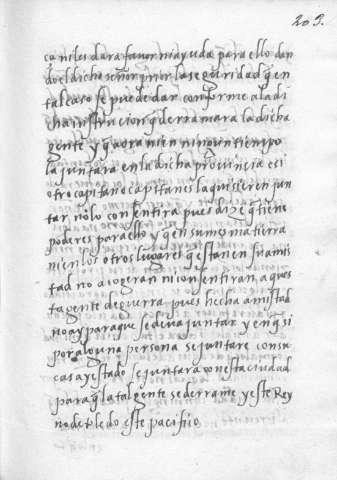 209.
ca ni les dara favor ni ayuda para ello dan
do el dicho señor prior la seguridad q en
tal caso se puede dar conforme a la di
cha instrucion q derramara la dicha
gente y q aora ni en ningun tiempo
la juntara en la dicha provincia e si
otro capitan o capitanes la quisieren jun
tar no lo consentira pues dize q tiene
poderes para ello y q en su misma tierra
ni en los otros lugares q esten en su amis
tad no acogeran ni consentiran a ques
ta gente de guerra pues hecha amistad
no ay para que se deva juntar y en q si
por alguna persona se juntare con su
casa y estado se juntara con esta ciudad
para q la tal gente se derrame y este Rey
no de toledo este pacifico